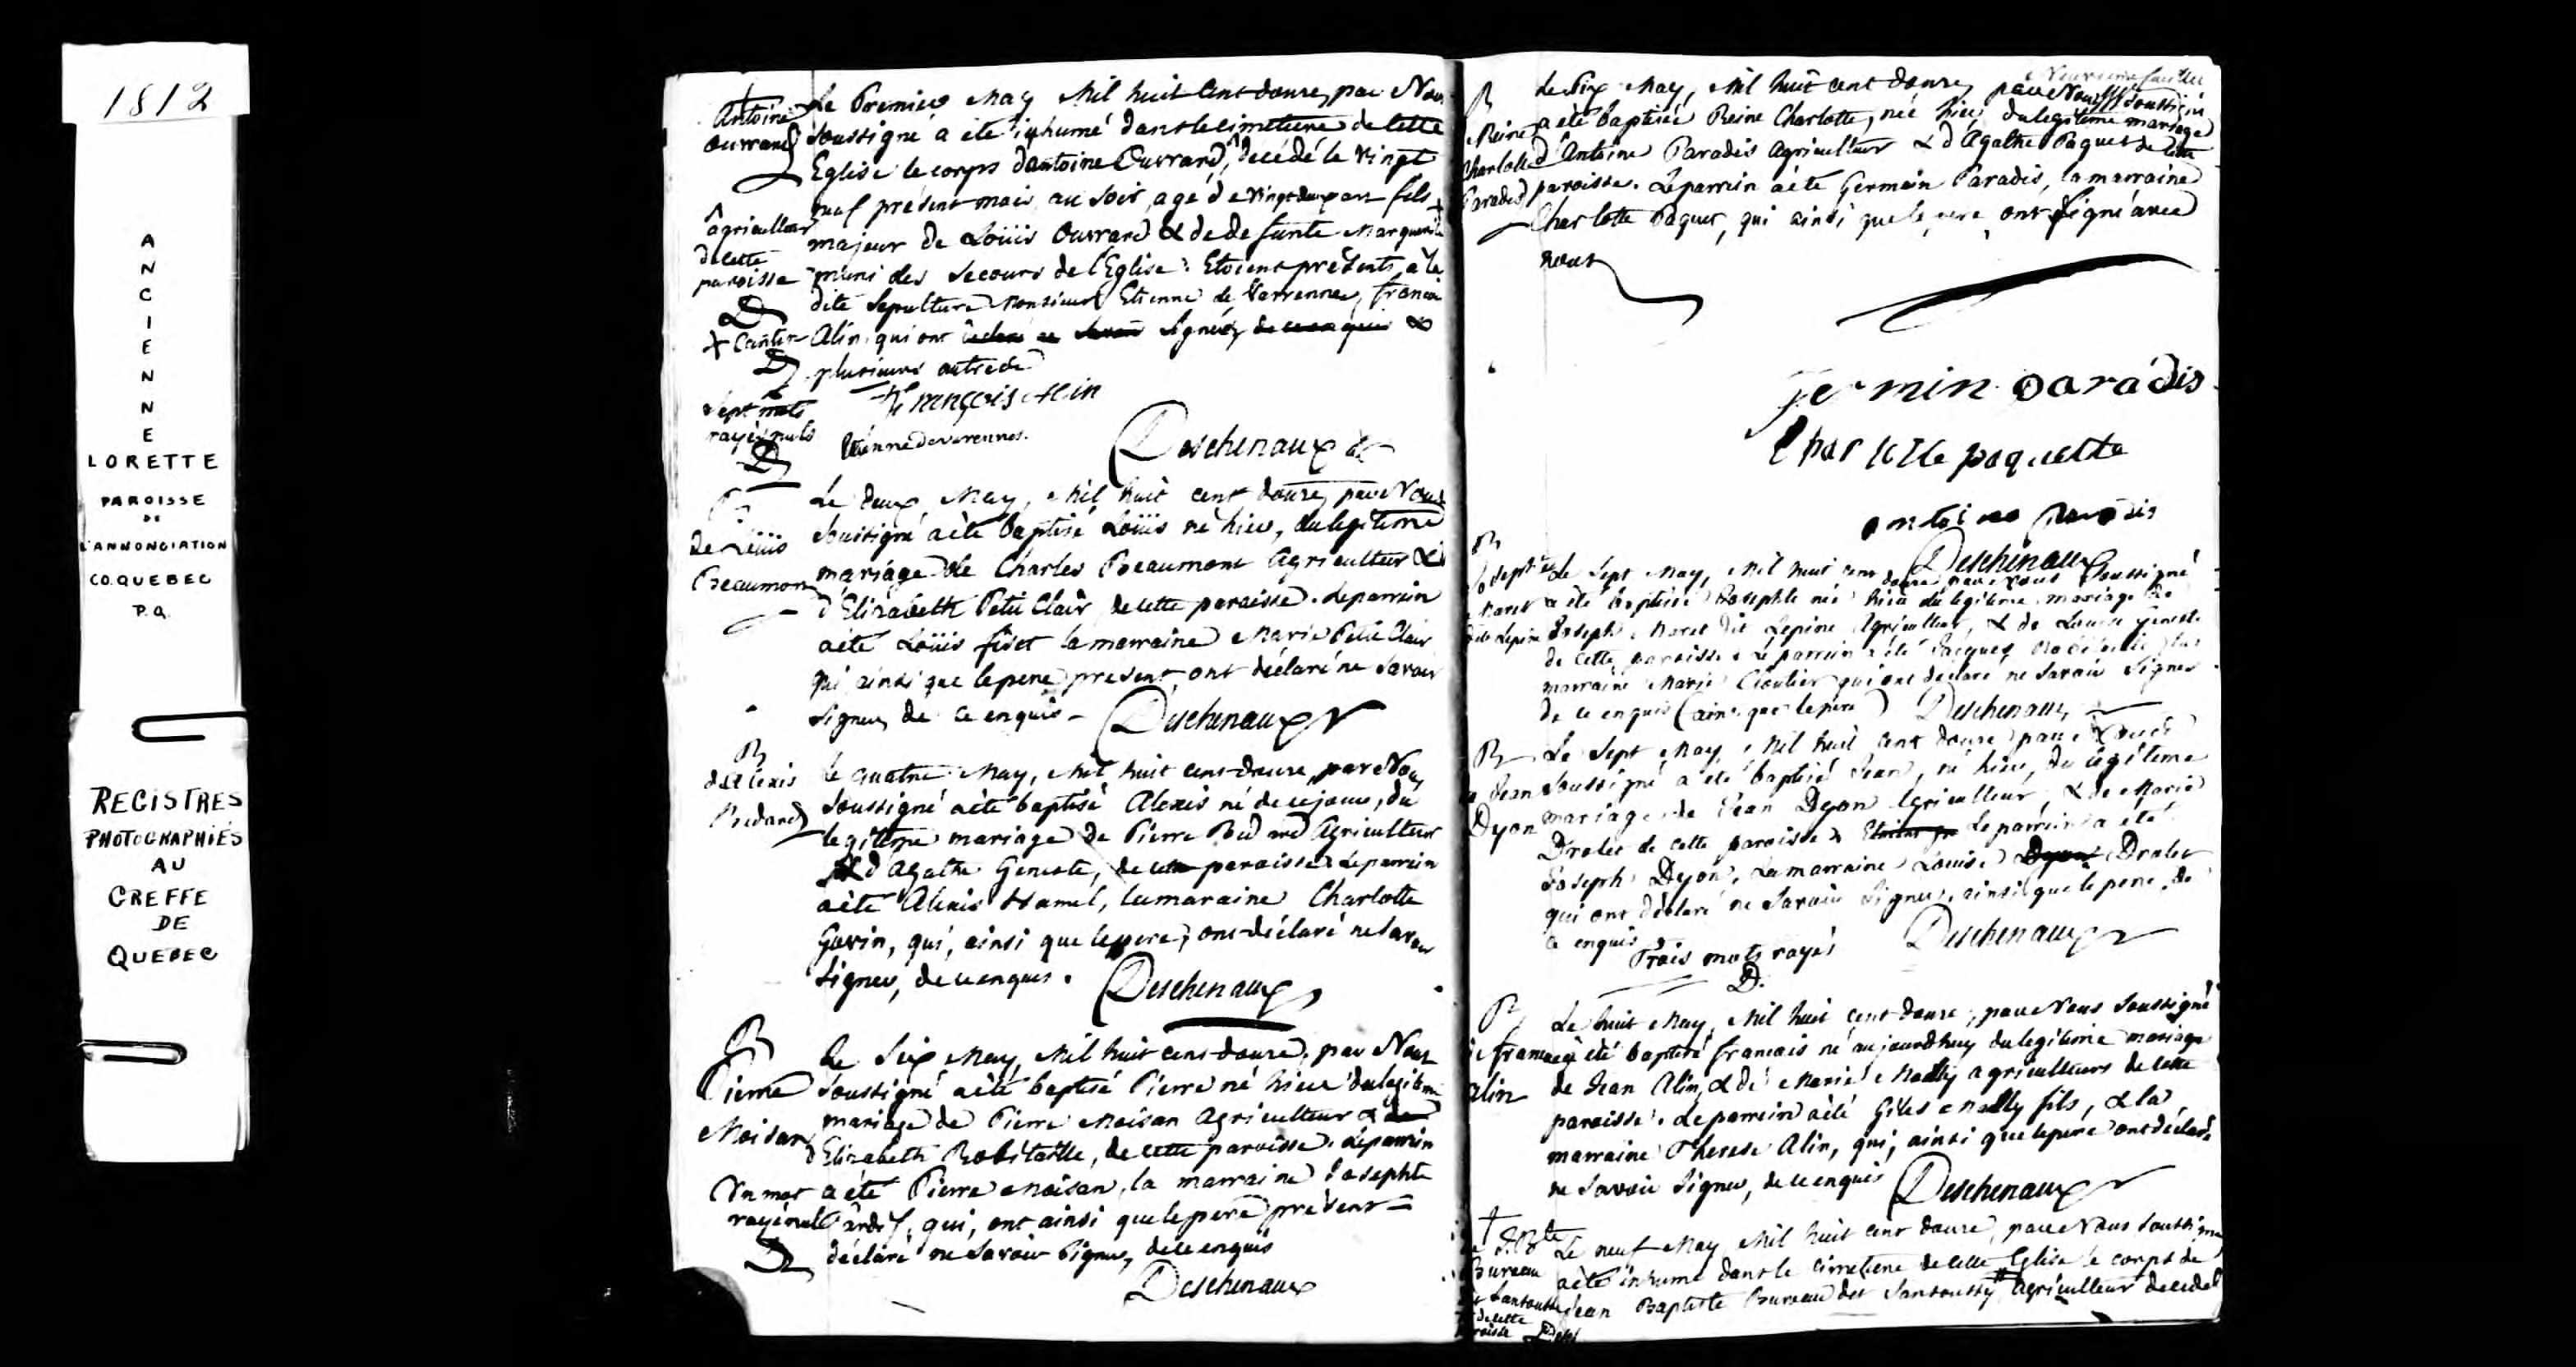 1812
ANCIENNE
LORETTE
PAROISSE
DE
L'ANNONCIATION
CO. QUEBEC
P.Q.
REGISTRES
PHOTOGRAPHIÉS
AU
GREFFE
DE
QUEBEC
Antoine
Ouvrard
agriculteur
de cette
paroisse
D
+ Cantin
D
Sept mots
rayés nuls
D
Le Premier May Mil huit Cent douze, par Nous
Soussigné a été inhumé dans le cimetiere de Cette
Eglise le corps d'antoine Ouvrard, décédé le vingt
neuf présent mois au soir, agé de vingt deux ans fils +
majeur de Loüis Ouvrard & de defunte Marguerite
muni des Secours de l'Eglise. Etoient présents, à la
dite Sepulture Monsieur Etienne de Varrennes, francois
Alin qui ont Signés, de ce enquis &
plusieurs autres
François Alin
Etienne devarennes.
Deschenaux
de Loüis
Beaumon
Le deux May, Mil huit cent douze, par Nous
Soussigné a été baptisé Loüis né hier, du legitime
mariage de Charles Beaumont Agriculteur &
d'Elizabeth Petit Clair, de cette paroisse. le parrein
a été Loüis fiset la marraine Marie Petit Clair
qui ainsi que le pere present, ont déclaré ne Savoir
Signer, de ce enquis - Deschenaux
B
d'Alexis
Bedard
Le quatre May, Mil huit cent douze, par Nous
Soussigné a été baptisé Alexis né de ce jour, du
legitime mariage de Pierre Bedard Agriculteur
& d'Agathe Geneste, de cette paroisse. Le parrein
a été Alexis Hamel, la maraine Charlotte
Govin, qui, ainsi que le pere, ont déclaré ne Savoir
Signer, de ce enquis. Deschenaux
B
Pierre
Moisan
Un mot
rayé nul
D
Le Six May, Mil huit cent douze, par Nous
Soussigné a été baptisé Pierre né hier du legitime
mariage de Pierre Moisan Agriculteur & de
d'Elizabeth Robitaille, de cette paroisse. Le parrein
a été Pierre Moisan, la marraine Josephte
qui, ont ainsi que le pere present -
déclaré ne Savoir Signer, de ce enquis
Deschenaux
B
Reine
Charlotte
Paradis
Le Six May, Mil huit cent douze, par Nous Soussigné
a été baptisée Reine Charlotte, née hier, du legitime mariage
d'Antoine Paradis Agriculteur & d'Agathe Paquet de cette
paroisse. Le parrein a été Germain Paradis, la marraine
Charlotte Paquet, qui ainsi que le pere, ont Signé avec
nous
jermin paradis
Charlotte paquette
antoine paradis
Deschenaux
B
Josephte
Moret
dite Lepine
Le Sept May, Mil huit cent douze par nous Soussigné
a été baptisée Josephte née hier du legitime mariage de
Joseph Moret dit Lepine Agriculteur, & de Louise Geneste
de cette paroisse. Le parrein a été Jacques Robitaille la
marraine Marie Cloutier qui ont declaré ne Savoir Signer
de ce enquis (ainsi que le pere) Deschenaux
B
de Jean
Dyon
Le Sept May, Mil huit cent douze par Nous
Soussigné a été baptisé Jean, né hier, du legitime
mariage de Jean Dyon Agriculteur, & de Marie
Drolet de cette paroisse. Etoient pr Le parrein a été
Joseph Dyon, La marraine Louise Dyon Drolet
qui ont déclaré ne Savoir Signer, ainsi que le pere, de
ce enquis
Trois mots rayés Deschenaux
D.
B
de francois
Alin
Le huit May, Mil huit cent douze, par Nous Soussigné
a été baptisé francois né aujourdhuy du legitime mariage
de Jean Alin, & de Marie Mailly agriculteurs de cette
paroisse. Le parrein a été Giles Mailly fils, & la
marraine Therese Alin, qui, ainsi que le pere ont déclaré
ne Savoir Signer, de ce enquis Deschenaux
+
de J. Bte
Bureau
dit Sansoussy
de cette
paroisse
Le neuf May, Mil huit cent douze, par Nous Soussigné
a été inhumé dans le cimetiere de cette Eglise le corps de
Jean Baptiste Bureau dit Sansoussy Agriculteur decedé